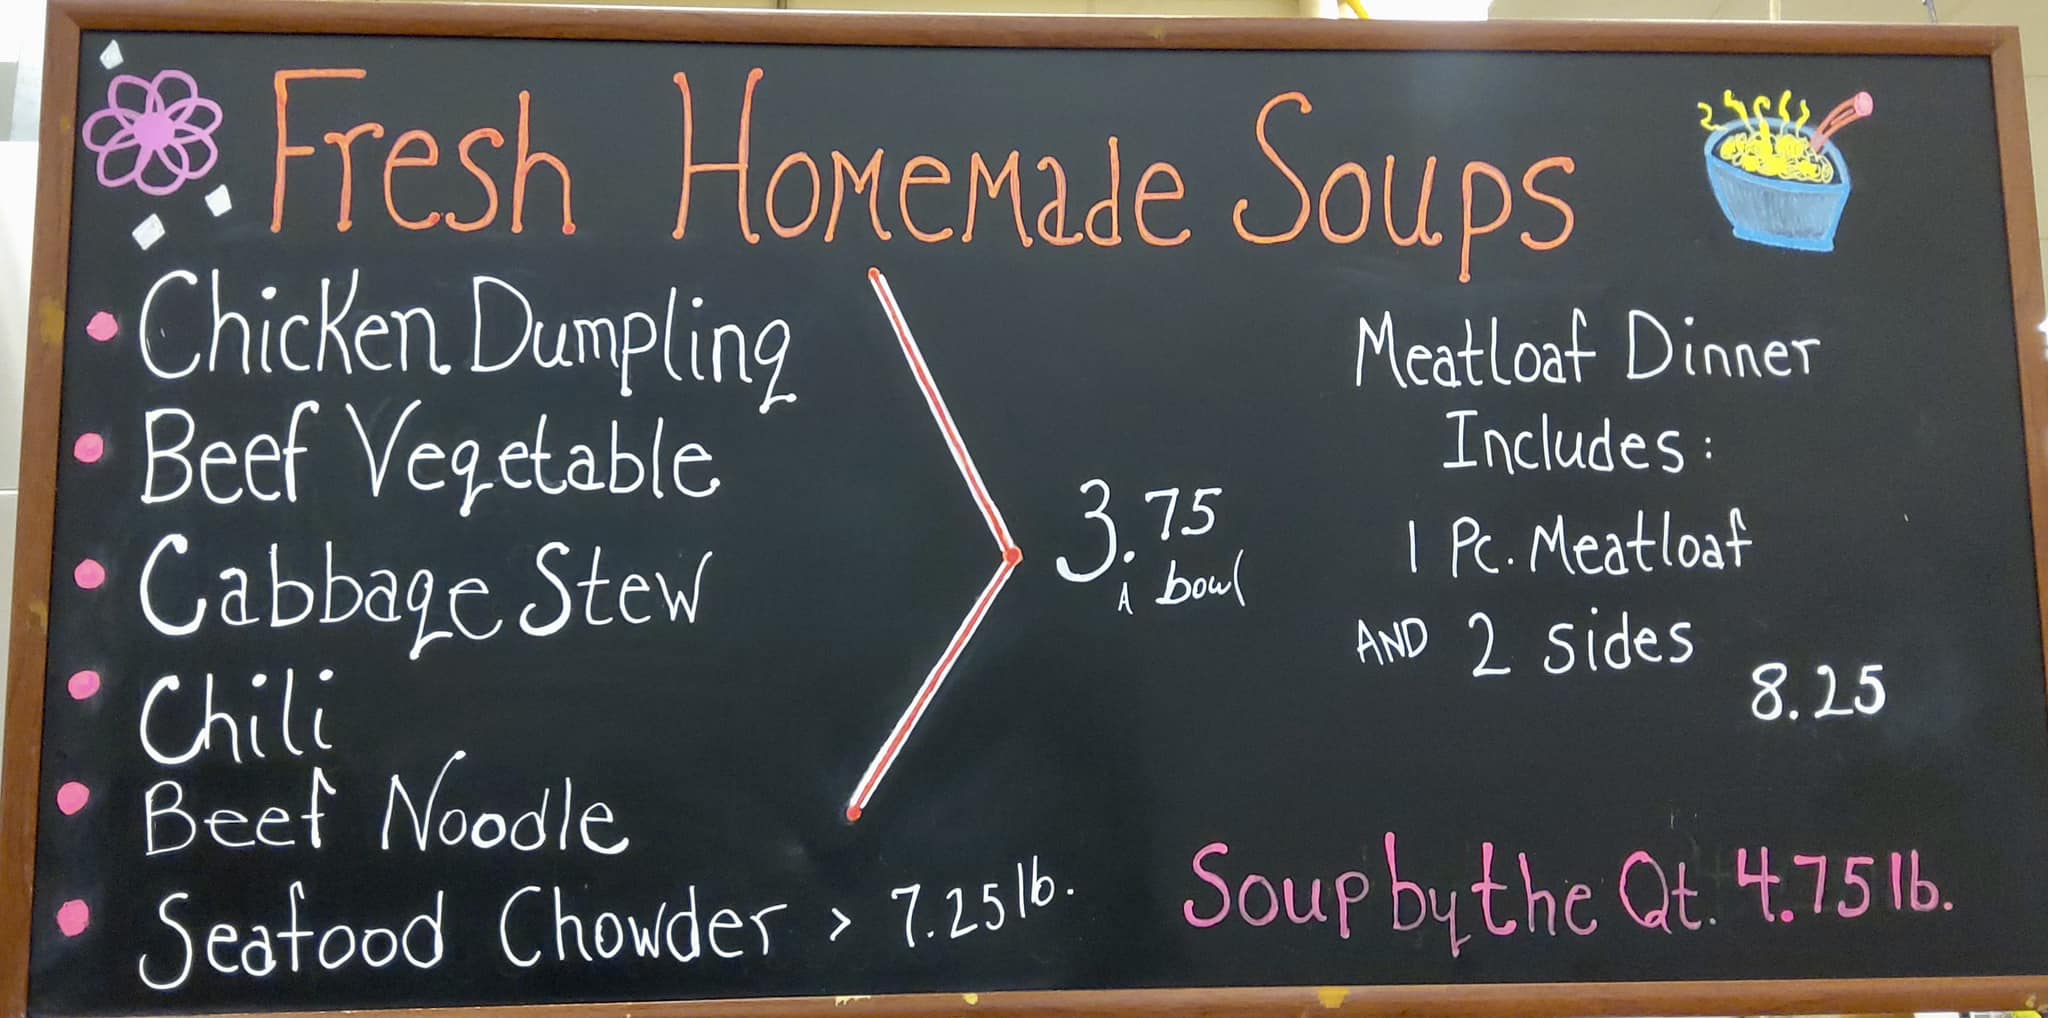 Fresh Homemade Soups
• Chicken Dumpling
• Beef Vegetable
• Cabbage Stew
• Chili
• Beef Noodle
• Seafood Chowder > 7.25 lb.
3.75
A bowl
Meatloaf Dinner
Includes:
1 Pc. Meatloaf
AND 2 sides
8.25
Soup by the Qt. 4.75 lb.